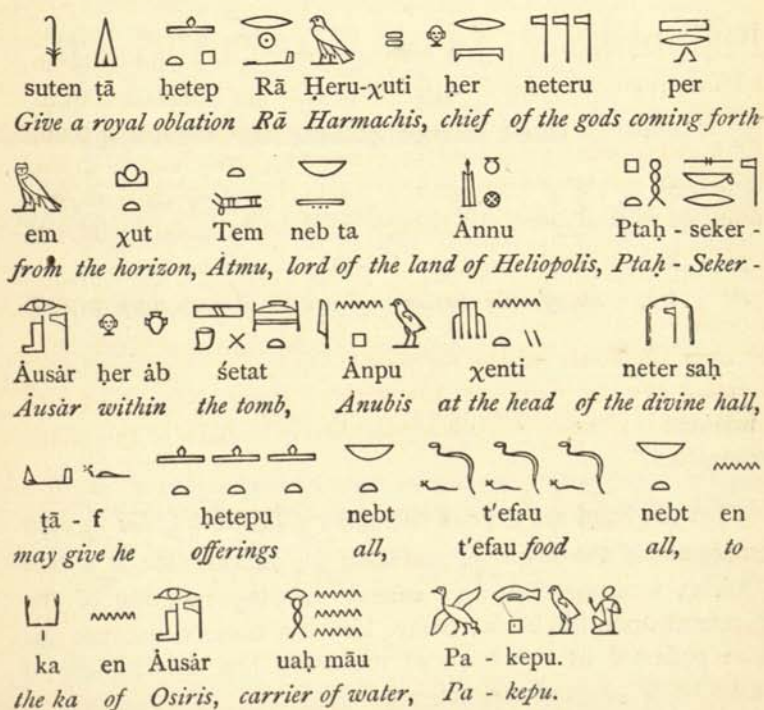 suten ṭā ḥetep Rā Ḥeru-χuti ḥer neteru per
Give a royal oblation Rā Harmachis, chief of the gods coming forth
em χut Tem neb ta Ȧnnu Ptaḥ - seker -
from the horizon, Ȧtmu, lord of the land of Heliopolis, Ptaḥ - Seker -
Ȧusȧr ḥer ȧb śetat Ȧnpu χenti neter saḥ
Ȧusȧr within the tomb, Ȧnubis at the head of the divine hall,
ṭā - f ḥetepu nebt t'efau nebt en
may give he offerings all, t'efau food all, to
ka en Ȧusȧr uaḥ māu Pa - kepu.
the ka of Osiris, carrier of water, Pa - kepu.